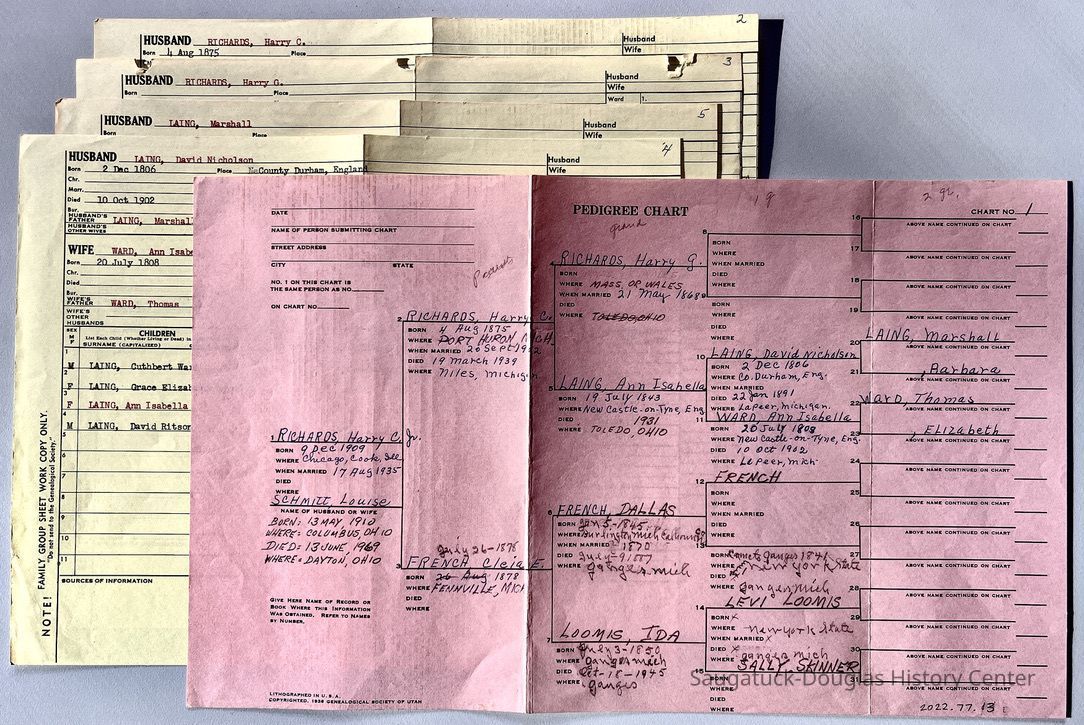 2
HUSBAND RICHARDS, Harry C.
Born 4 Aug 1875 Place
Husband
Wife
3
HUSBAND RICHARDS, Harry G.
Born Place
Husband
Wife
Ward 1.
5
HUSBAND LAING, Marshall
Born Place
Husband
Wife
4
HUSBAND LAING, David Nicholson
Born 2 Dec 1806 Place County Durham, England
Husband
Wife
Chr.
Marr.
Died 10 Oct 1902
Bur.
HUSBAND'S FATHER LAING, Marshal
HUSBAND'S OTHER WIVES
WIFE WARD, Ann Isabe
Born 20 July 1808
Chr.
Died
Bur.
WIFE'S FATHER WARD, Thomas
WIFE'S OTHER HUSBANDS
SEX M F
CHILDREN
List Each Child (Whether Living or Dead) in
SURNAME (CAPITALIZED)
1
M LAING, Cuthbert Wa
2
F LAING, Grace Elizab
3
F LAING, Ann Isabella
4
M LAING, David Ritson
5
6
7
8
9
10
11
SOURCES OF INFORMATION
NOTE! FAMILY GROUP SHEET WORK COPY ONLY.
"Do not send to the Genealogical Society."
DATE
NAME OF PERSON SUBMITTING CHART
STREET ADDRESS
CITY STATE
NO. 1 ON THIS CHART IS
THE SAME PERSON AS NO.
ON CHART NO.
parents
PEDIGREE CHART
grand
1 g
2 gr.
CHART NO. 1
2 RICHARDS, Harry C.
BORN 4 Aug 1875
WHERE PORT HURON, MICH.
WHEN MARRIED 20 Sept 1902
DIED 19 March 1939
WHERE Niles, Michigan
1 RICHARDS, Harry C, Jr.
BORN 9 Dec 1909
WHERE Chicago, Cook, Ill
WHEN MARRIED 17 Aug 1935
DIED
WHERE
SCHMITT, Louise
NAME OF HUSBAND OR WIFE
BORN: 13 MAY, 1910
WHERE: COLUMBUS, OHIO
DIED: 13 JUNE, 1969
WHERE: DAYTON, OHIO
July 26-1878
3 FRENCH Cleia E.
BORN 26 Aug 1878
WHERE FENNVILLE, MICH
DIED
WHERE
GIVE HERE NAME OF RECORD OR
BOOK WHERE THIS INFORMATION
WAS OBTAINED. REFER TO NAMES
BY NUMBER.
LITHOGRAPHED IN U.S.A.
COPYRIGHTED, 1936 GENEALOGICAL SOCIETY OF UTAH
4 RICHARDS, Harry G.
BORN
WHERE MASS. OR WALES
WHEN MARRIED 21 May 1868
DIED
WHERE TOLEDO, OHIO
5 LAING, Ann Isabella
BORN 19 July 1843
WHERE New Castle-on-Tyne, Eng
DIED 1931
WHERE TOLEDO, OHIO
6 FRENCH, DALLAS
BORN Jan 5-1845
WHERE Burlington Mich Calhoun
WHEN MARRIED 1870
DIED July-9-
WHERE Ganges Mich
7 LOOMIS, IDA
BORN July 3-1850
WHERE Ganges Mich
DIED Oct-18-1945
WHERE Ganges
8
BORN
WHERE
WHEN MARRIED
DIED
WHERE
9
BORN
WHERE
DIED
WHERE
10 LAING, David Nicholson
BORN 2 Dec 1806
WHERE Co. Durham, Eng.
WHEN MARRIED
DIED 22 Jan 1891
WHERE LaPeer, Michigan
11 WARD, Ann Isabella
BORN 20 July 1808
WHERE New Castle-on-Tyne, Eng.
DIED 10 Oct 1902
WHERE LaPeer, Mich
12 FRENCH
BORN
WHERE
WHEN MARRIED
DIED
WHERE
13
BORN Ganges 1841
WHERE New York State
DIED
WHERE Ganges Mich
14 LEVI LOOMIS
BORN
WHERE New York State
WHEN MARRIED
DIED
WHERE Ganges Mich
15 SALLY SKINNER
BORN
WHERE
DIED
WHERE
16
ABOVE NAME CONTINUED ON CHART
17
ABOVE NAME CONTINUED ON CHART
18
ABOVE NAME CONTINUED ON CHART
19
ABOVE NAME CONTINUED ON CHART
LAING, Marshall
20
ABOVE NAME CONTINUED ON CHART
, Barbara
21
ABOVE NAME CONTINUED ON CHART
WARD, Thomas
22
ABOVE NAME CONTINUED ON CHART
, Elizabeth
23
ABOVE NAME CONTINUED ON CHART
24
ABOVE NAME CONTINUED ON CHART
25
ABOVE NAME CONTINUED ON CHART
26
ABOVE NAME CONTINUED ON CHART
27
ABOVE NAME CONTINUED ON CHART
28
ABOVE NAME CONTINUED ON CHART
29
ABOVE NAME CONTINUED ON CHART
30
ABOVE NAME CONTINUED ON CHART
31
ABOVE NAME CONTINUED ON CHART
Saugatuck-Douglas History Center
2022.77.13